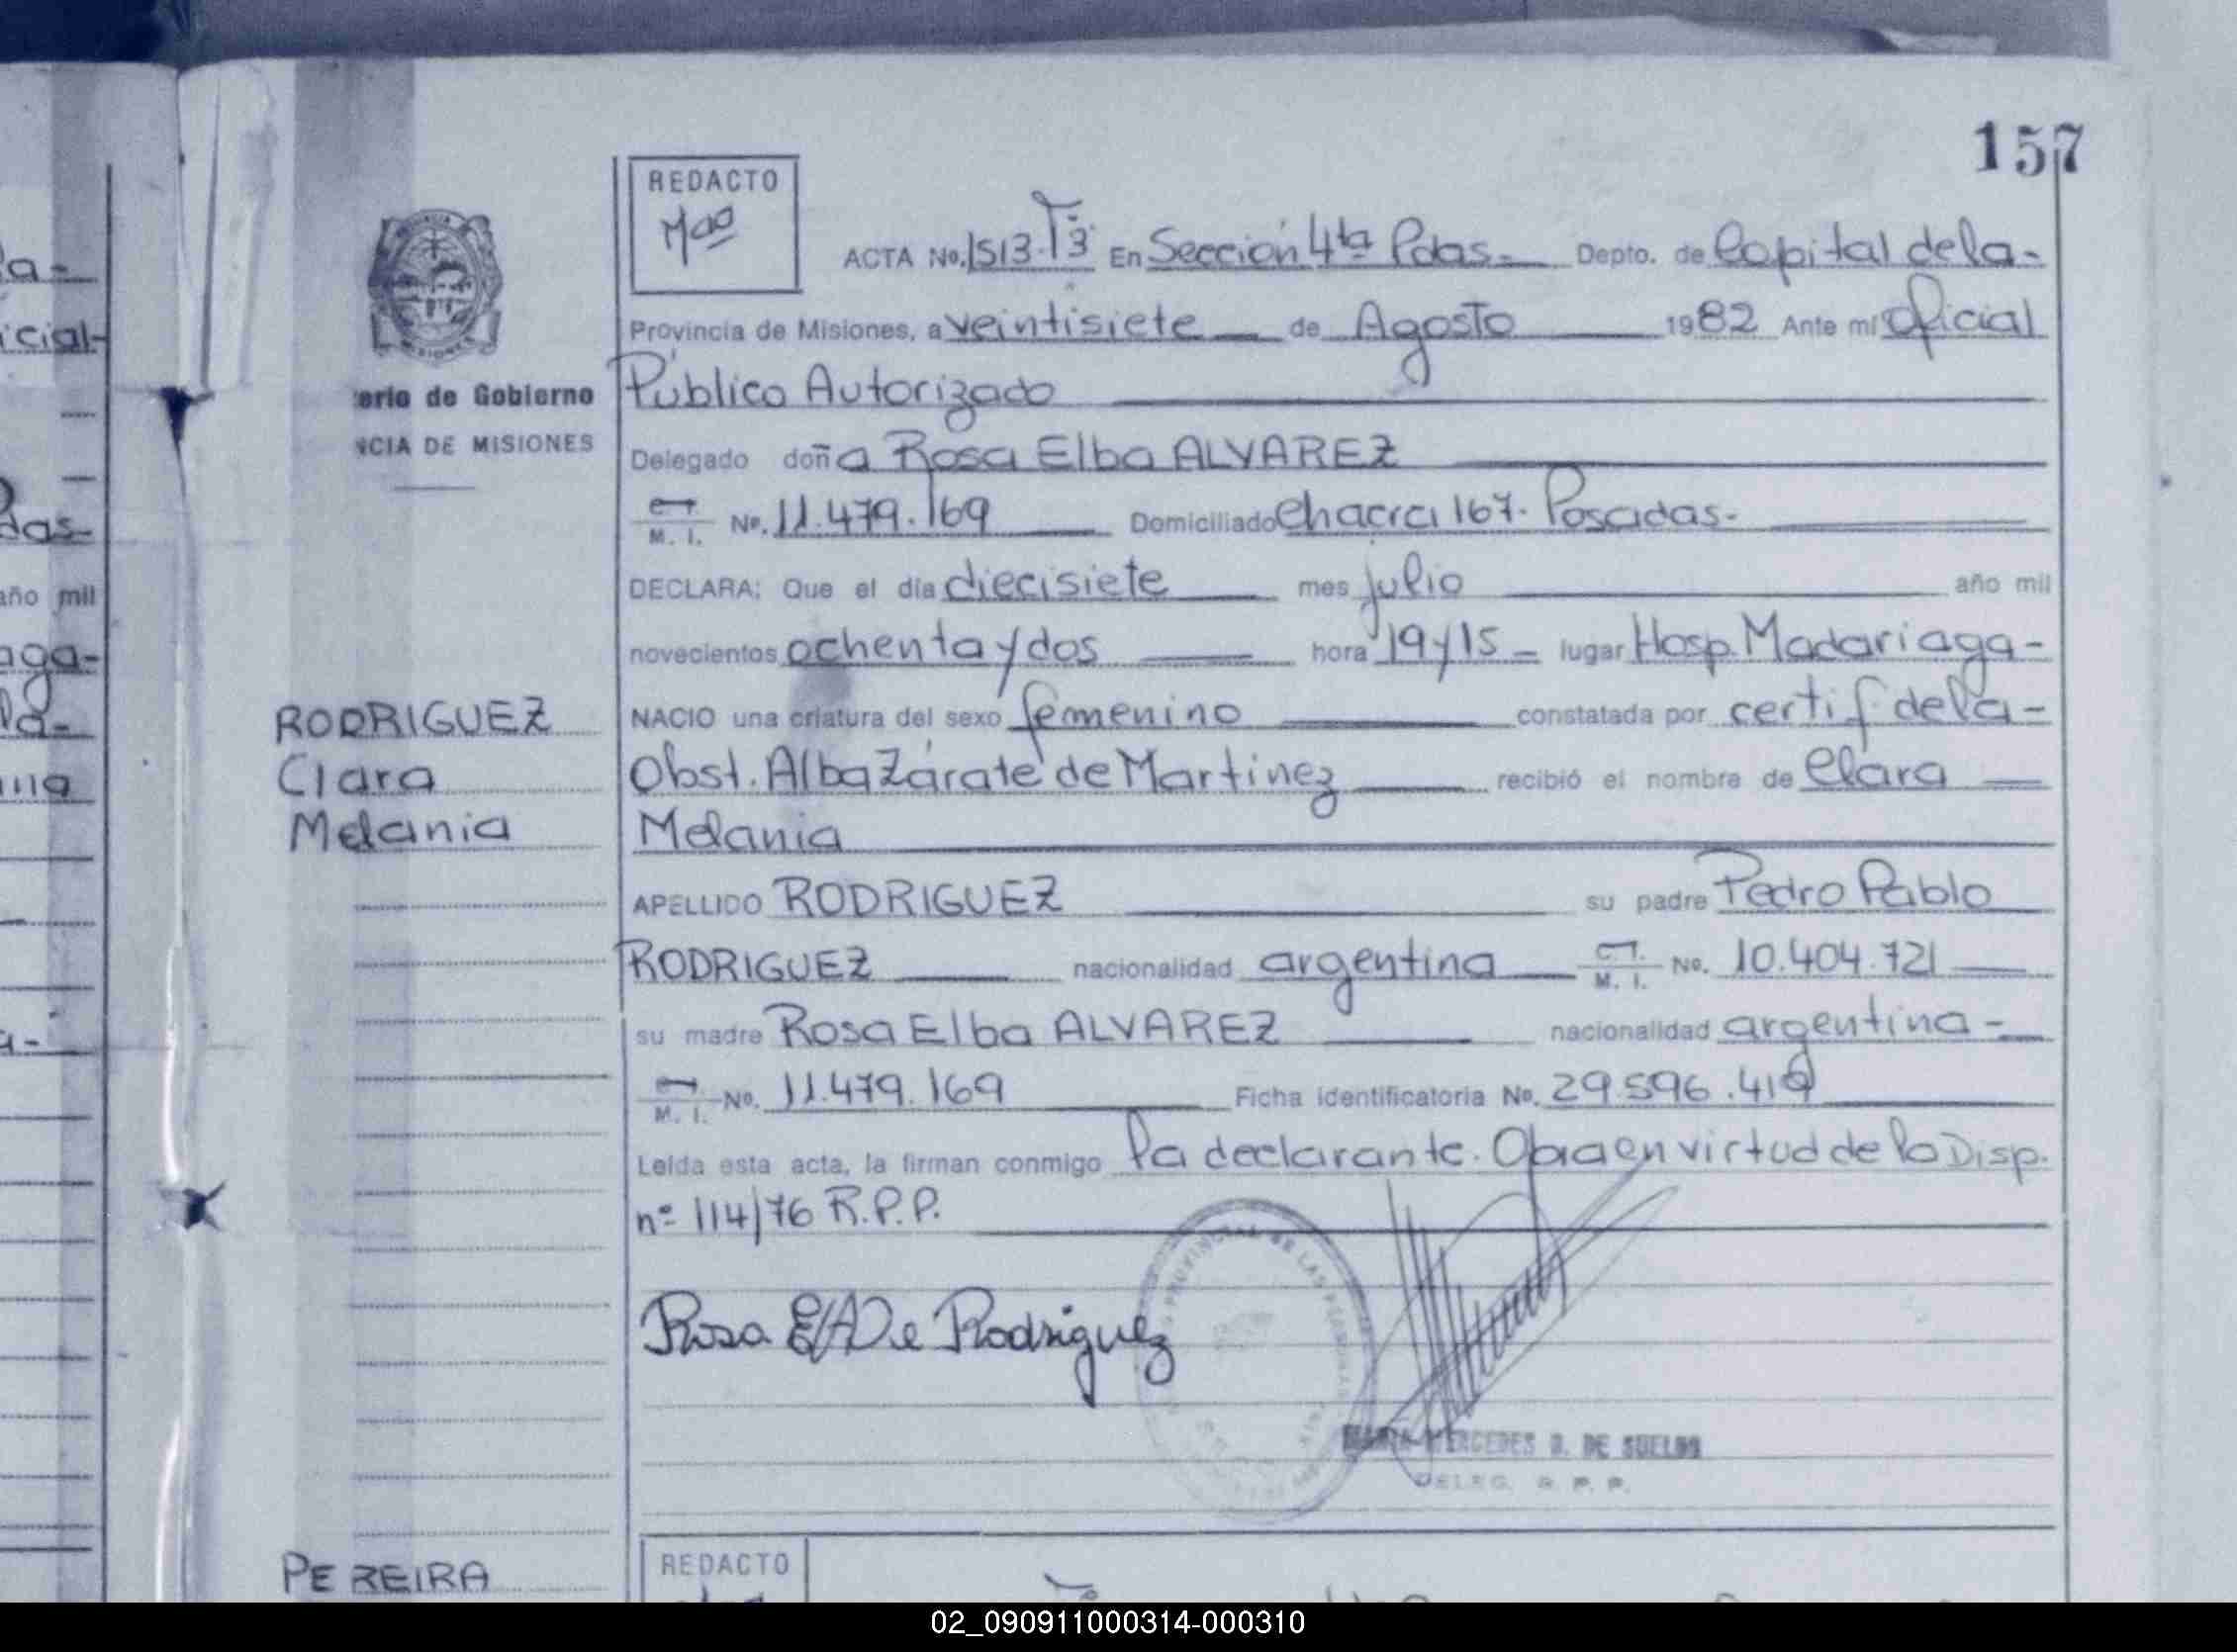 157
REDACTO
ACTA No. 1513 T°3 En Sección 4ta Pdas- Depto. de Capital de la-
Provincia de Misiones, a veintisiete de Agosto 1982 Ante mí Oficial
Público Autorizado
erio de Gobierno
NCIA DE MISIONES
Delegado doña Rosa Elba ALVAREZ
M. I. No. 11.479.169 Domiciliado Chacra 167. Posadas-
DECLARA: Que el día diecisiete mes julio año mil
novecientos ochenta y dos hora 19 y 15 - lugar Hosp. Madariaga-
RODRIGUEZ
Clara
Melania
NACIO una criatura del sexo femenino constatada por certif de la-
Obst. Alba Zárate de Martinez recibió el nombre de Clara
Melania
APELLIDO RODRIGUEZ su padre Pedro Pablo
RODRIGUEZ nacionalidad argentina M. I. No. 10.404.721
su madre Rosa Elba ALVAREZ nacionalidad argentina-
M. I. No. 11.479.169 Ficha identificatoria No. 29.596.419
Leída esta acta, la firman conmigo la declarante. Obra en virtud de la Disp.
nº 114/76 R.P.P.
Rosa E A De Rodriguez
MARIA MERCEDES D. DE SUELDO
DELEG. R. P. P.
PEREIRA
REDACTO
la-
icial-
das-
año mil
aga-
la-
02_090911000314-000310